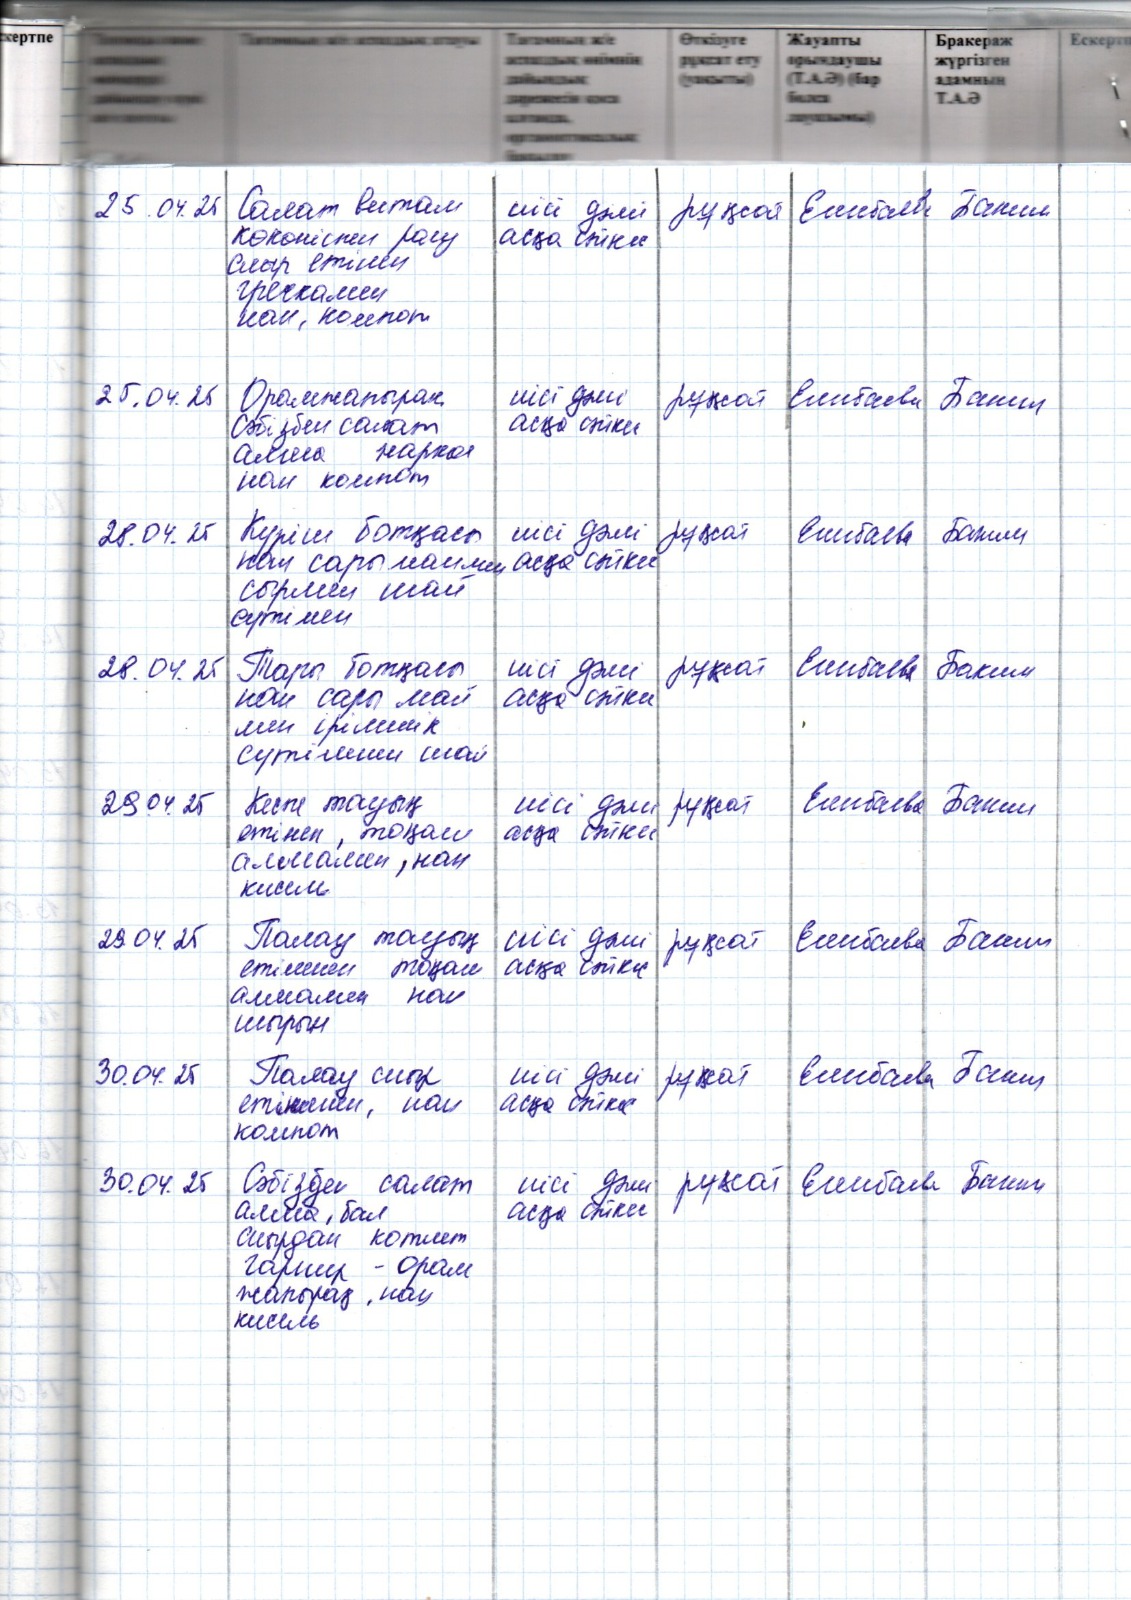 скертпе
Өткізуге
рұқсат ету
(уақыты)
Жауапты
орындаушы
(Т.А.Ә) (бар
болса
Бракераж
жүргізген
адамның
Т.А.Ә
Ескерт
25.04.25 Салат витам иісі дәмі рұқсат Елибаева Бакит
көкөніспен рагу асқа сәйкес
сиыр етімен
гречкамен
нан, компот
25.04.25 Орамжапырақ иісі дәмі рұқсат Елибаева Бакит
сәбізбен салат асқа сәйкес
алма жаркое
нан компот
28.04.25 Күріш ботқасы иісі дәмі рұқсат Елибаева Бакит
нан сары маймен асқа сәйкес
сырмен шай
сүтімен
28.04.25 Тары ботқасы иісі дәмі рұқсат Елибаева Бакит
нан сары май асқа сәйкес
мен ірімшік
сүтімен шай
29.04.25 Кеспе тауық иісі дәмі рұқсат Елибаева Бакит
етінен, тоқаш асқа сәйкес
алмамен, нан
кисель
29.04.25 Палау тауық иісі дәмі рұқсат Елибаева Бакит
етімен тоқаш асқа сәйкес
алмамен нан
шырын
30.04.25 Палау сиыр иісі дәмі рұқсат Елибаева Бакит
етімен, нан асқа сәйкес
компот
30.04.25 Сәбізбен салат иісі дәмі рұқсат Елибаева Бакит
алма, бал асқа сәйкес
сиырдан котлет
гарнир - орам
жапырақ, нан
кисель